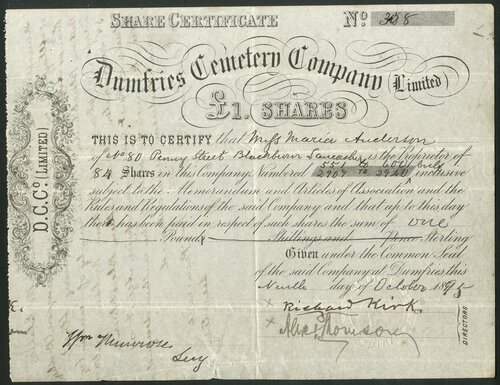 SHARE CERTIFICATE Nº 328
Dumfries Cemetery Company (Limited)
£1. SHARES
THIS IS TO CERTIFY that Miss Maria Anderson
of No 80 Penny Street Blackburn Lancaster is the Proprietor of
84 Shares in this Company Numbered 551 to 601 both inclusive
2907 to 2940
subject to the Memorandum and Articles of Association and the
Rules and Regulations of the said Company and that up to this day
there has been paid in respect of such shares the sum of one
Pound Shillings and Pence Sterling
Given under the Common Seal
of the said Company at Dumfries this
day of October 1895
Richard Kirk
Alex Thomson
DIRECTORS
Wm
Secy
D.C.Cº. (LIMITED)